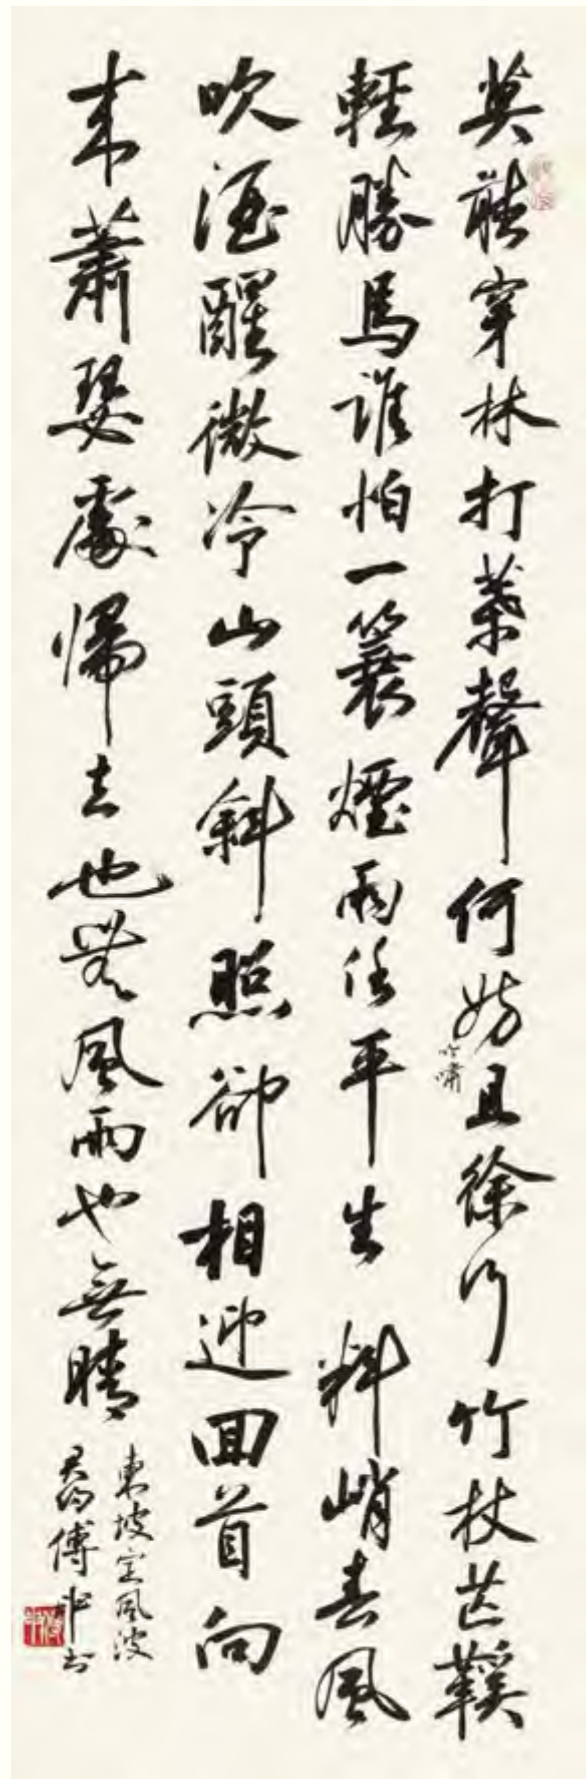 莫聽穿林打葉聲何妨且徐行竹杖芒鞵
吟嘯
輕勝馬誰怕一簑煙雨任平生 料峭春風
吹酒醒微冷山頭斜照卻相迎回首向
来蕭瑟處歸去也無風雨也無晴
東坡定風波
傅 书